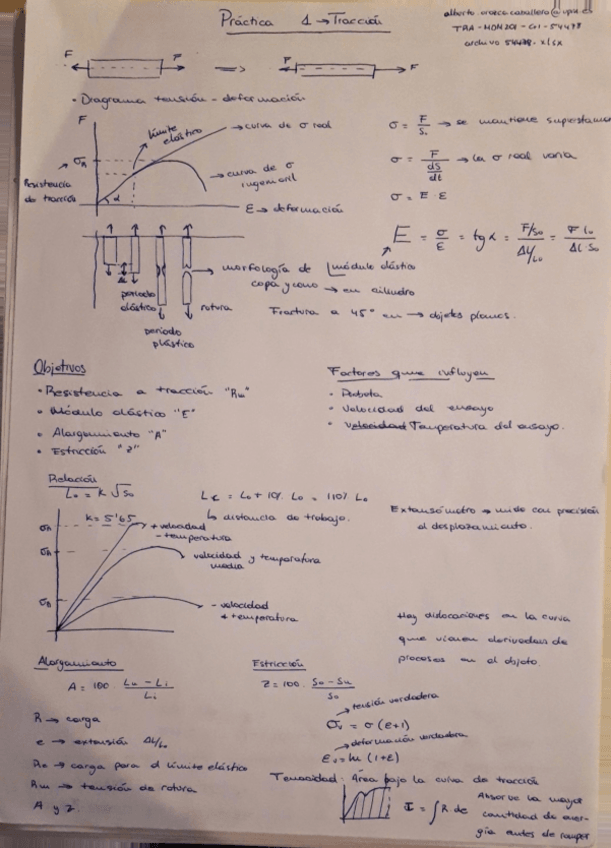 Práctica 1 → Tracción
TRA-MDM201-G1-54478
archivo 54478.xlsx
F F => F
• Diagrama tensión - deformación
F
límite elástico
→ curva de σ real
→ curva de σ ingenieril
Resistencia de tracción
α
E → deformación
σ = F/S₀ → se mantiene
σ = F / (dS/dt) → la σ real varía
σ = E · ε
E = σ/ε = tg α = (F/S₀)/(ΔL/L₀) = (F L₀)/(ΔL · S₀)
módulo elástico
periodo elástico
periodo plástico
rotura
morfología de copa y cono → en cilindro
Fractura a 45° en → objetos planos.
Objetivos
• Resistencia a tracción "Rm"
• Módulo elástico "E"
• Alargamiento "A"
• Estricción "Z"
Factores que influyen
• Probeta
• Velocidad del ensayo
• Velocidad Temperatura del ensayo.
Relación
L₀ = K √S₀
K = 5'65
Lc = L₀ + 10% L₀ = 110% L₀
↳ distancia de trabajo.
Extensómetro → mide con precisión
el desplazamiento.
+ velocidad
- temperatura
velocidad y temperatura
media
- velocidad
+ temperatura
Hay dislocaciones en la curva
que vienen derivadas de
procesos en el objeto
Alargamiento
A = 100 · (Lu - Li)/Li
Estricción
Z = 100 · (S₀ - Su)/S₀
R → carga
e → extensión ΔL/L₀
Re → carga para el límite elástico
Rm → tensión de rotura
A y Z.
→ tensión verdadera
σv = σ (ε+1)
→ deformación verdadera
εv = ln (1+ε)
Tenacidad: Área bajo la curva de tracción
I = ∫R de
Absorve la mayor
cantidad de ener-
gía antes de romper